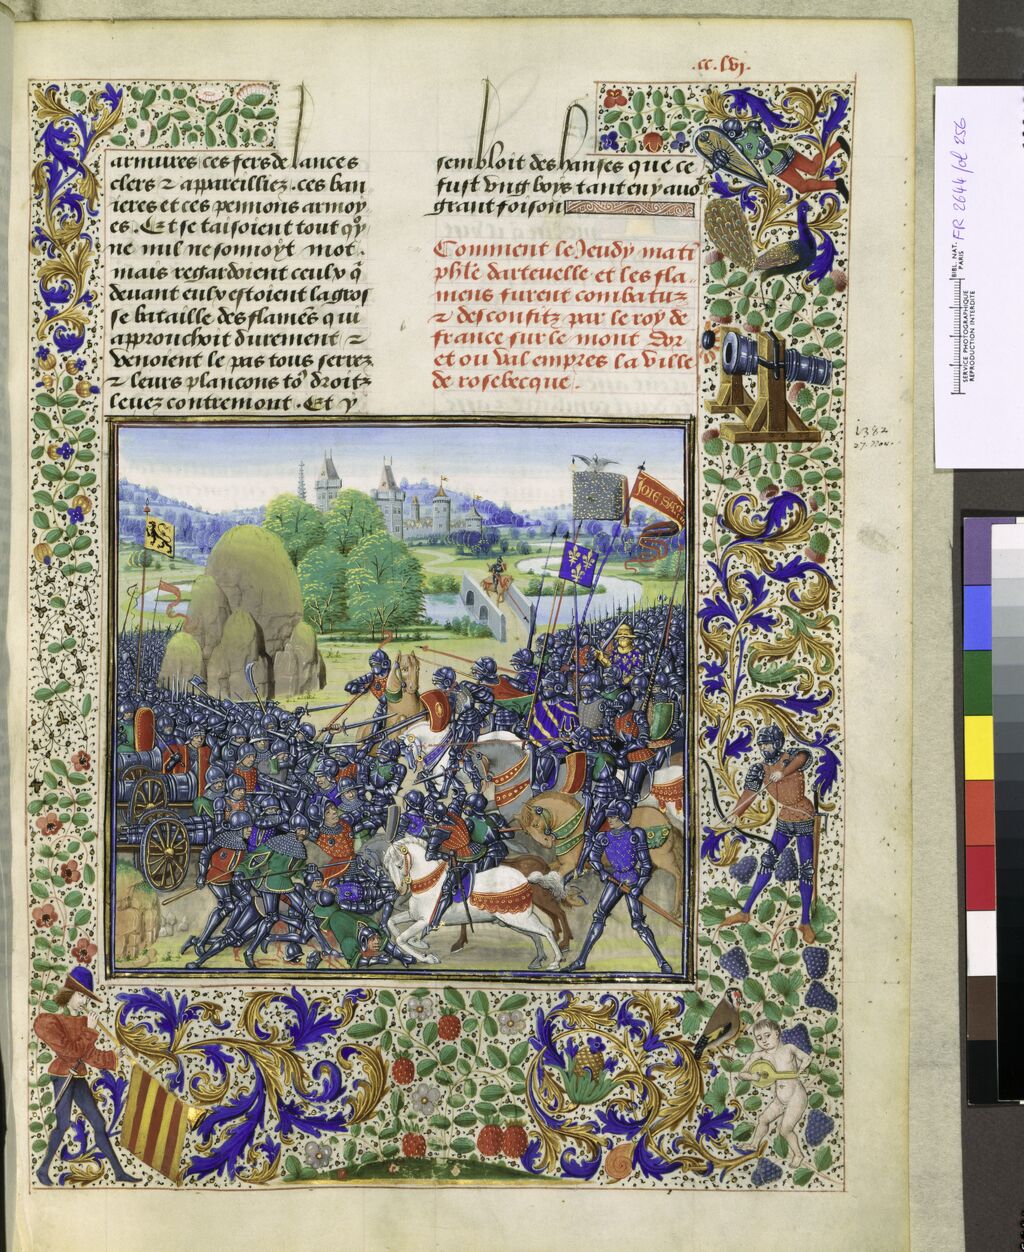 .cc.lvi.
armures ces fers de lances
clers ⁊ appareilliez. ces ban
ieres et ces pennons armoy
es. Et se taisoient tout q̃
ne nul ne sonnoyt mot.
mais regardoient ceulx q̃
deuant eulx estoient la gros
se bataille des flamẽs qui
approuchoit durement ⁊
venoient le pas tous serrez
⁊ leurs plancons to9 droitz
leuez contremont. Et y
sembloit des hanses que ce
fust vng boys tant en y auo
grant foison
Comment le Jeudy mati
phle darteuelle et les fla
mens furent combatuz
⁊ desconfitz par le roy de
france sur le mont dor
et ou val empres la ville
de rosebecque.
1382
27. nov.
JOIE SAI
BIBL. NAT.
PARIS
FR 2644 fol 256
SERVICE PHOTOGRAPHIQUE
REPRODUCTION INTERDITE